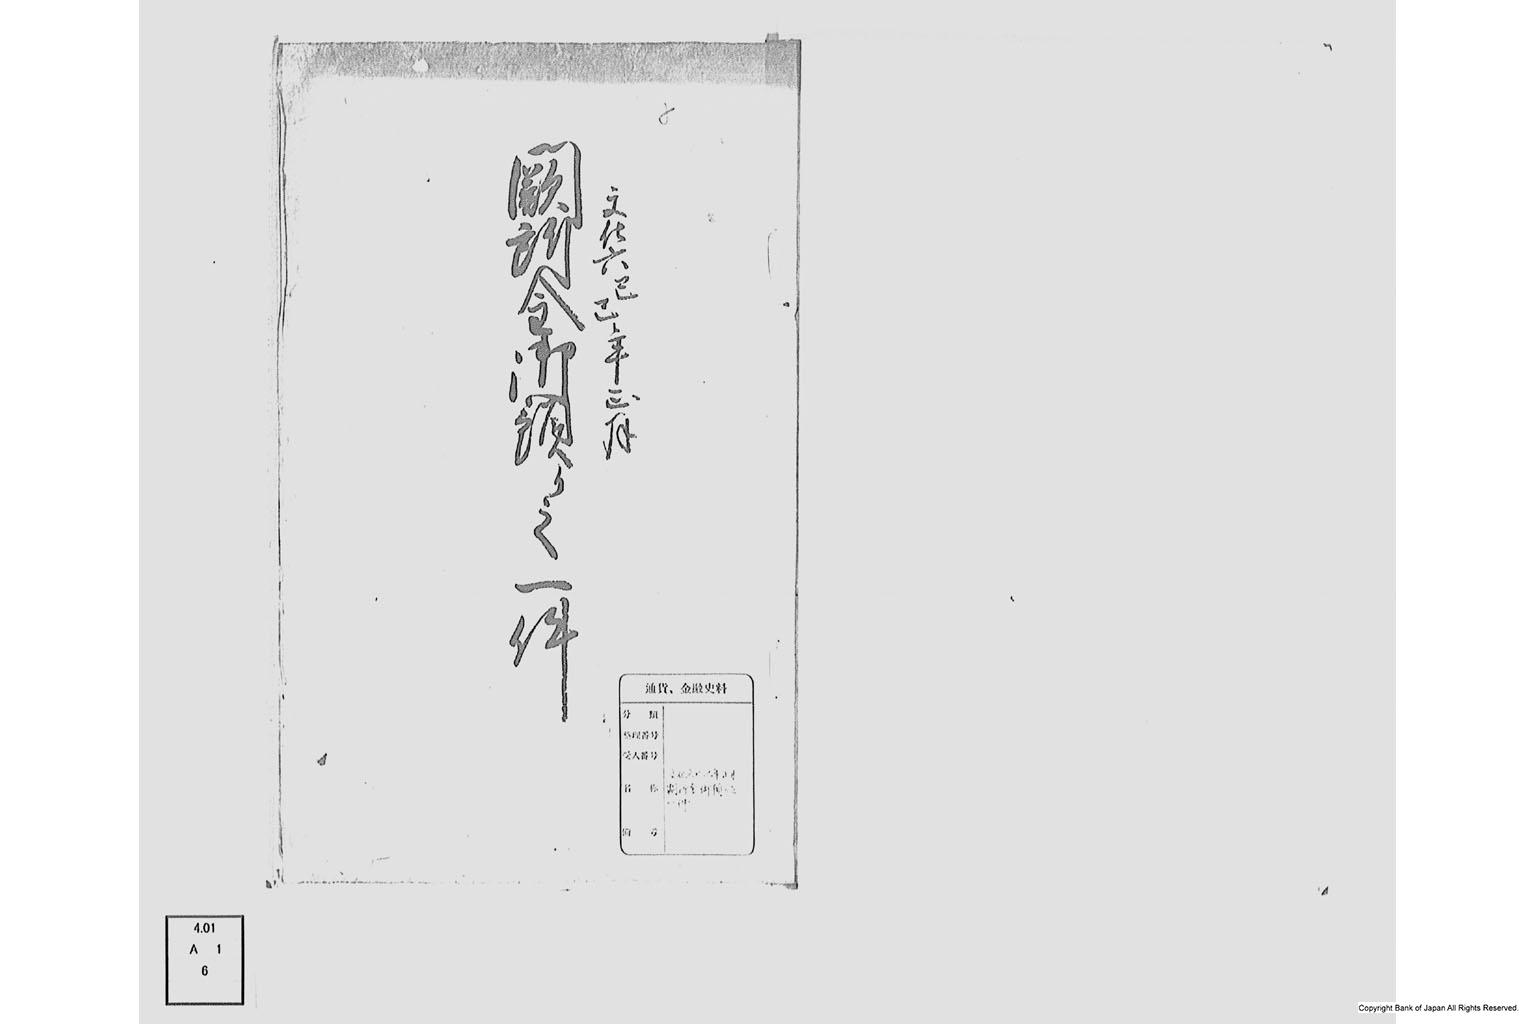 文化六己巳年正月
闕所金御預ケ之一件
通貨、金融史料
分類
整理番号
受入番号
名称
備考
4.01
A 1
6
Copyright Bank of Japan All Rights Reserved.